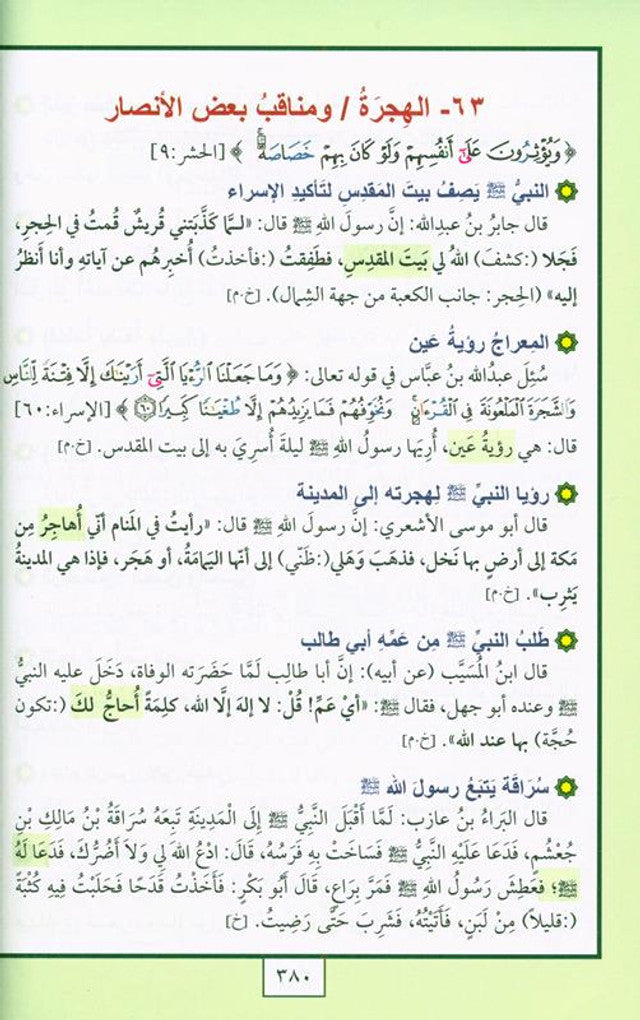 ٦٣- الهِجرَةُ / ومناقبُ بعض الأنصار
﴿ وَيُؤْثِرُونَ عَلَىٰٓ أَنفُسِهِمْ وَلَوْ كَانَ بِهِمْ خَصَاصَةٌ ۚ ﴾ [الحشر:٩]
النبيُّ ﷺ يَصِفُ بيتَ المَقدِسِ لتَأكيدِ الإسراء
قال جابرُ بنُ عبدِالله: إنَّ رسولَ اللهِ ﷺ قال: «لـمَّا كَذَّبَتني قُريشٌ قُمتُ في الحِجرِ،
فَجَلا (:كشفَ) اللهُ لي بَيتَ المَقدِسِ، فطَفِقتُ (:فأخذتُ) أُخبِرُهم عن آياتِه وأنا أَنظرُ
إليه» (الحِجر: جانب الكعبة من جهة الشِمال). [خ٠م]
المِعراجُ رؤيةُ عَين
سُئِلَ عبدُاللهِ بنُ عبَّاس في قوله تعالى: ﴿ وَمَا جَعَلْنَا ٱلرُّءْيَا ٱلَّتِىٓ أَرَيْنَٰكَ إِلَّا فِتْنَةً لِّلنَّاسِ
وَٱلشَّجَرَةَ ٱلْمَلْعُونَةَ فِى ٱلْقُرْءَانِ ۚ وَنُخَوِّفُهُمْ فَمَا يَزِيدُهُمْ إِلَّا طُغْيَٰنًا كَبِيرًا ۝٦٠ ﴾ [الإسراء:٦٠]
قال: هي رؤيةُ عَين، أُرِيَها رسولُ اللهِ ﷺ ليلةَ أُسرِيَ به إلى بيت المقدس. [خ٠م]
رؤيا النبيِّ ﷺ لِهجرته إلى المدينة
قال أبو موسى الأشعري: إنَّ رسولَ اللهِ ﷺ قال: «رأيتُ في المَنام أنّي أُهاجِرُ مِن
مَكة إلى أرضٍ بها نَخل، فذهَبَ وَهَلي(:ظَنّي) إلى أنّها اليَمامَةُ، أو هَجَر، فإذا هي المدينةُ
يَثرِب». [خ٠م]
طَلبُ النبيِّ ﷺ مِن عَمِّهِ أبي طالب
قال ابنُ المُسَيَّب (عن أبيه): إنَّ أبا طالِب لَمَّا حَضَرَته الوفاة، دَخَلَ عليه النبيُّ
ﷺ وعنده أبو جهل، فقال ﷺ: «أيْ عَمِّ! قُلْ: لا إلهَ إلَّا الله، كلِمَةً أُحاجُّ لكَ (:تكون
حُجَّة) بها عند الله». [خ٠م]
سُرَاقَة يَتبَعُ رسولَ الله ﷺ
قال البَراءُ بنُ عازب: لَمَّا أَقْبَلَ النَّبِيُّ ﷺ إِلَى الْمَدِينَةِ تَبِعَهُ سُرَاقَةُ بْنُ مَالِكِ بْنِ
جُعْشُمٍ، فَدَعَا عَلَيْهِ النَّبِيُّ ﷺ فَسَاخَتْ بِهِ فَرَسُهُ، قَالَ: ادْعُ اللهَ لِي وَلاَ أَضُرُّكَ، فَدَعَا لَهُ
ﷺ؛ فعَطِشَ رَسُولُ اللهِ ﷺ فَمَرَّ بِرَاعٍ، قَالَ أَبُو بَكْرٍ: فَأَخَذْتُ قَدَحًا فَحَلَبْتُ فِيهِ كُثْبَةً
(:قليلاً) مِنْ لَبَنٍ، فَأَتَيْتُهُ، فَشَرِبَ حَتَّى رَضِيتُ. [خ]
٣٨٠